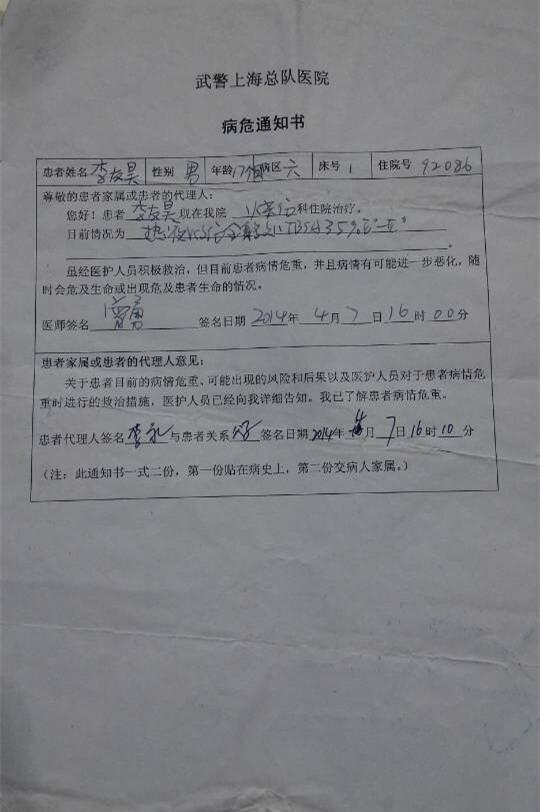 武警上海总队医院
病危通知书
患者姓名 李友昊 性别 男 年龄 17个月 病区 六 床号 1 住院号 92086
尊敬的患者家属或患者的代理人：
您好！患者 李友昊 现在我院 烧伤 科住院治疗。
目前情况为 热液烧伤全身多处TBSA35%
虽经医护人员积极救治，但目前患者病情危重，并且病情有可能进一步恶化，随
时会危及生命或出现危及患者生命的情况。
医师签名 签名日期 2014年 4月 7日 16时 00分
患者家属或患者的代理人意见：
关于患者目前的病情危重、可能出现的风险和后果以及医护人员对于患者病情危
重时进行的救治措施，医护人员已经向我详细告知。我已了解患者病情危重。
患者代理人签名 李 与患者关系 父子 签名日期 2014年 月 7日 16时 10分
（注：此通知书一式二份，第一份贴在病史上，第二份交病人家属。）